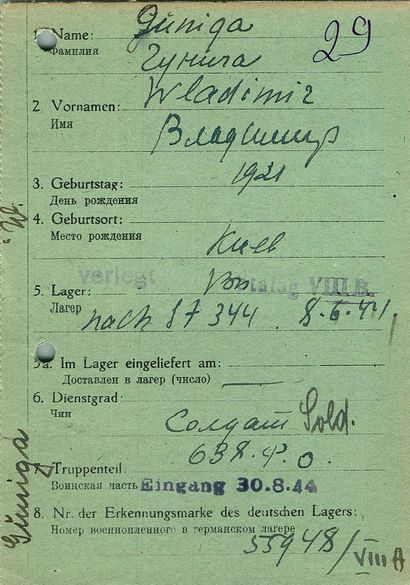 1. Name: Güniga 29
Фамилия Гунига
2. Vornamen: Wladimir
Имя Владимир
3. Geburtstag: 1921
День рождения
4. Geburtsort:
Место рождения Киев
verlegt von Stalag VIII B.
5. Lager:
Лагер nach 87 344 8.6.44
5a. Im Lager eingeliefert am:
Доставлен в лагер (число) —
6. Dienstgrad:
Чин Солдат Sold.
638.
7. Truppenteil:
Воинская часть Eingang 30.8.44
8. Nr. der Erkennungsmarke des deutschen Lagers:
Номер военнопленного в германском лагере
55948/VIII A
Güniga W.